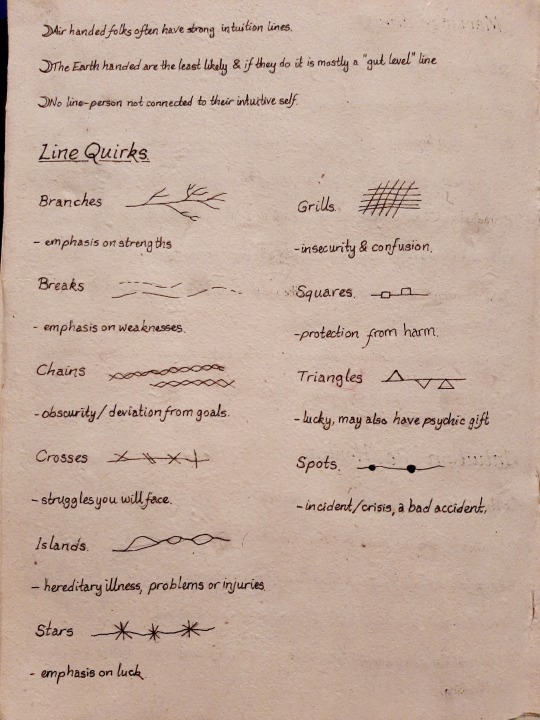 Air handed folks often have strong intuition lines.
The Earth handed are the least likely & if they do it is mostly a "gut level" line
No line-person not connected to their intuitive self.
Line Quirks
Branches
- emphasis on strengths
Breaks
- emphasis on weaknesses.
Chains
- obscurity/deviation from goals.
Crosses
- struggles you will face.
Islands.
- hereditary illness, problems or injuries.
Stars
- emphasis on luck
Grills.
- insecurity & confusion.
Squares.
- protection from harm.
Triangles
- lucky, may also have psychic gift
Spots.
- incident/crisis, a bad accident.